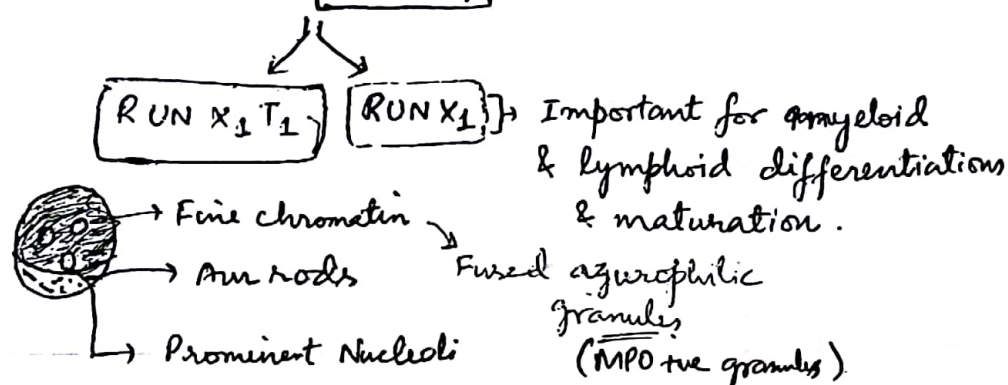 RUNX1T1 RUNX1 Important for myeloid
& lymphoid differentiations
& maturation.
Fine chromatin
Aur rods Fused azurophilic
granules
Prominent Nucleoli (MPO +ve granules)